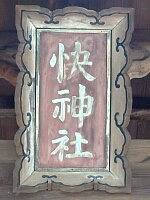 快神社